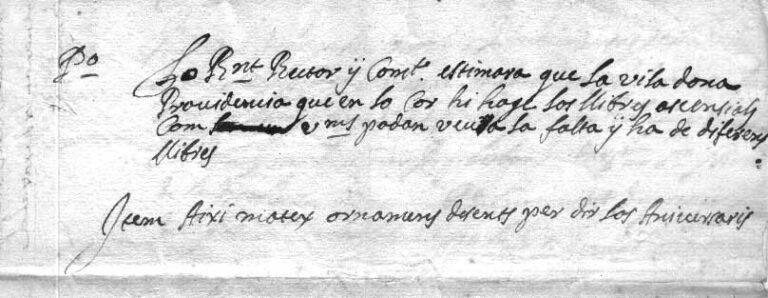 Po Lo Rnt Rector y Comt. estimara que la vila dona
Providencia que en lo Cor hi hage los llibres ascensials
Com vms podan veura la falta y ha de diferens
llibres
Item Aixi matex ornamens desents per dir los Aniversaris